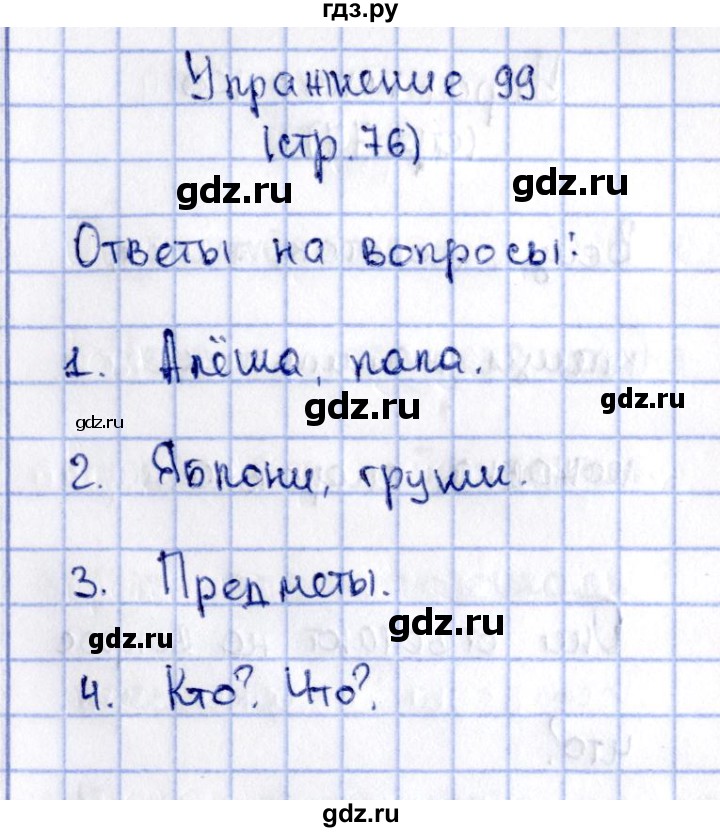 гдз.ру
Упражнение 99
(стр. 76)
gdz.ru
gdz.ru
Ответы на вопросы:
1. Алёша, папа.
gdz.ru
gdz.ru
gdz.ru
2. Яблони, груши.
3. Предметы.
gdz.ru
gdz.ru
4. Кто? Что?.
gdz.ru